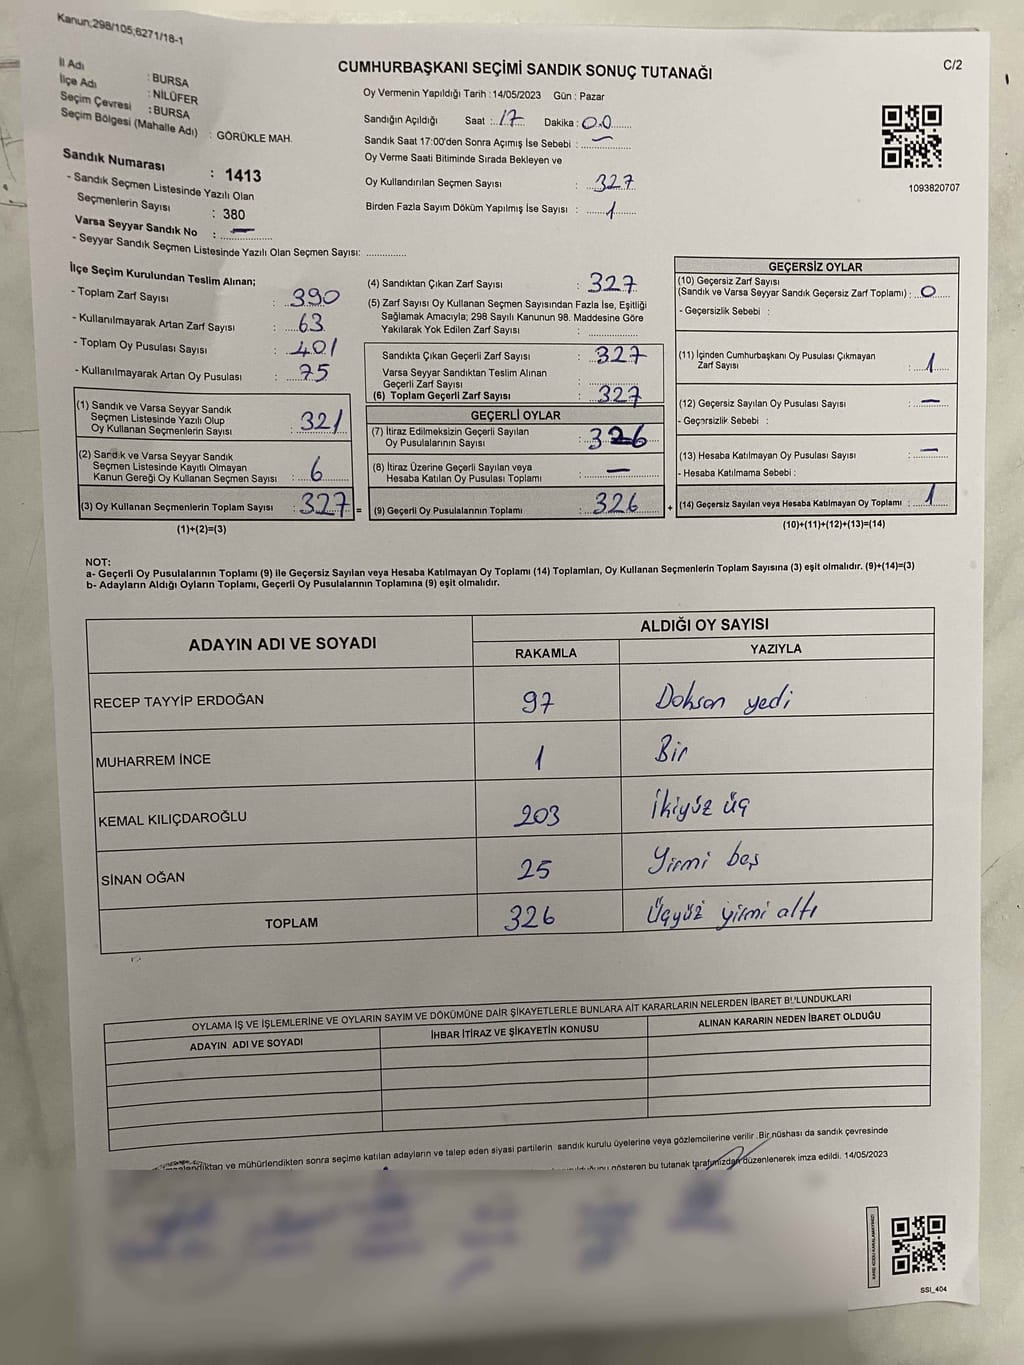 Kanun;298/105;6271/18-1
C/2
İl Adı : BURSA
İlçe Adı : NİLÜFER
Seçim Çevresi : BURSA
Seçim Bölgesi (Mahalle Adı) : GÖRÜKLE MAH.
Sandık Numarası : 1413
- Sandık Seçmen Listesinde Yazılı Olan
Seçmenlerin Sayısı : 380
Varsa Seyyar Sandık No : —
- Seyyar Sandık Seçmen Listesinde Yazılı Olan Seçmen Sayısı: ..............
CUMHURBAŞKANI SEÇİMİ SANDIK SONUÇ TUTANAĞI
Oy Vermenin Yapıldığı Tarih : 14/05/2023 Gün : Pazar
Sandığın Açıldığı Saat : 17 Dakika : 00
Sandık Saat 17:00'den Sonra Açımış İse Sebebi : —
Oy Verme Saati Bitiminde Sırada Bekleyen ve
Oy Kullandırılan Seçmen Sayısı : 327
Birden Fazla Sayım Döküm Yapılmış İse Sayısı : 1
1093820707
İlçe Seçim Kurulundan Teslim Alınan;
- Toplam Zarf Sayısı : 390
- Kullanılmayarak Artan Zarf Sayısı : 63
- Toplam Oy Pusulası Sayısı : 401
- Kullanılmayarak Artan Oy Pusulası : 75
(1) Sandık ve Varsa Seyyar Sandık
Seçmen Listesinde Yazılı Olup
Oy Kullanan Seçmenlerin Sayısı : 321
(2) Sandık ve Varsa Seyyar Sandık
Seçmen Listesinde Kayıtlı Olmayan
Kanun Gereği Oy Kullanan Seçmen Sayısı : 6
(3) Oy Kullanan Seçmenlerin Toplam Sayısı : 327 =
(1)+(2)=(3)
(4) Sandıktan Çıkan Zarf Sayısı : 327
(5) Zarf Sayısı Oy Kullanan Seçmen Sayısından Fazla İse, Eşitliği
Sağlamak Amacıyla; 298 Sayılı Kanunun 98. Maddesine Göre
Yakılarak Yok Edilen Zarf Sayısı : ..............
Sandıkta Çıkan Geçerli Zarf Sayısı : 327
Varsa Seyyar Sandıktan Teslim Alınan
Geçerli Zarf Sayısı : ..............
(6) Toplam Geçerli Zarf Sayısı : 327
GEÇERLİ OYLAR
(7) İtiraz Edilmeksizin Geçerli Sayılan
Oy Pusulalarının Sayısı : 326
(8) İtiraz Üzerine Geçerli Sayılan veya
Hesaba Katılan Oy Pusulası Toplamı : —
(9) Geçerli Oy Pusulalarının Toplamı : 326 +
GEÇERSİZ OYLAR
(10) Geçersiz Zarf Sayısı
(Sandık ve Varsa Seyyar Sandık Geçersiz Zarf Toplamı) : 0
- Geçersizlik Sebebi :
(11) İçinden Cumhurbaşkanı Oy Pusulası Çıkmayan
Zarf Sayısı : 1
(12) Geçersiz Sayılan Oy Pusulası Sayısı : —
- Geçersizlik Sebebi :
(13) Hesaba Katılmayan Oy Pusulası Sayısı : —
- Hesaba Katılmama Sebebi :
(14) Geçersiz Sayılan veya Hesaba Katılmayan Oy Toplamı : 1
(10)+(11)+(12)+(13)=(14)
NOT:
a- Geçerli Oy Pusulalarının Toplamı (9) ile Geçersiz Sayılan veya Hesaba Katılmayan Oy Toplamı (14) Toplamları, Oy Kullanan Seçmenlerin Toplam Sayısına (3) eşit olmalıdır. (9)+(14)=(3)
b- Adayların Aldığı Oyların Toplamı, Geçerli Oy Pusulalarının Toplamına (9) eşit olmalıdır.
ADAYIN ADI VE SOYADI ALDIĞI OY SAYISI
RAKAMLA YAZIYLA
RECEP TAYYİP ERDOĞAN 97 Doksan yedi
MUHARREM İNCE 1 Bir
KEMAL KILIÇDAROĞLU 203 İkiyüz üç
SİNAN OĞAN 25 Yirmi beş
TOPLAM 326 Üçyüz yirmi altı
OYLAMA İŞ VE İŞLEMLERİNE VE OYLARIN SAYIM VE DÖKÜMÜNE DAİR ŞİKAYETLERLE BUNLARA AİT KARARLARIN NELERDEN İBARET BULUNDUKLARI
ADAYIN ADI VE SOYADI İHBAR İTİRAZ VE ŞİKAYETİN KONUSU ALINAN KARARIN NEDEN İBARET OLDUĞU
ve mühürlendikten sonra seçime katılan adayların ve talep eden siyasi partilerin sandık kurulu üyelerine veya gözlemcilerine verilir .Bir nüshası da sandık çevresinde
gösteren bu tutanak tarafımızdan düzenlenerek imza edildi. 14/05/2023
KARE KODU KARALAMAYINIZ!
SSI_404